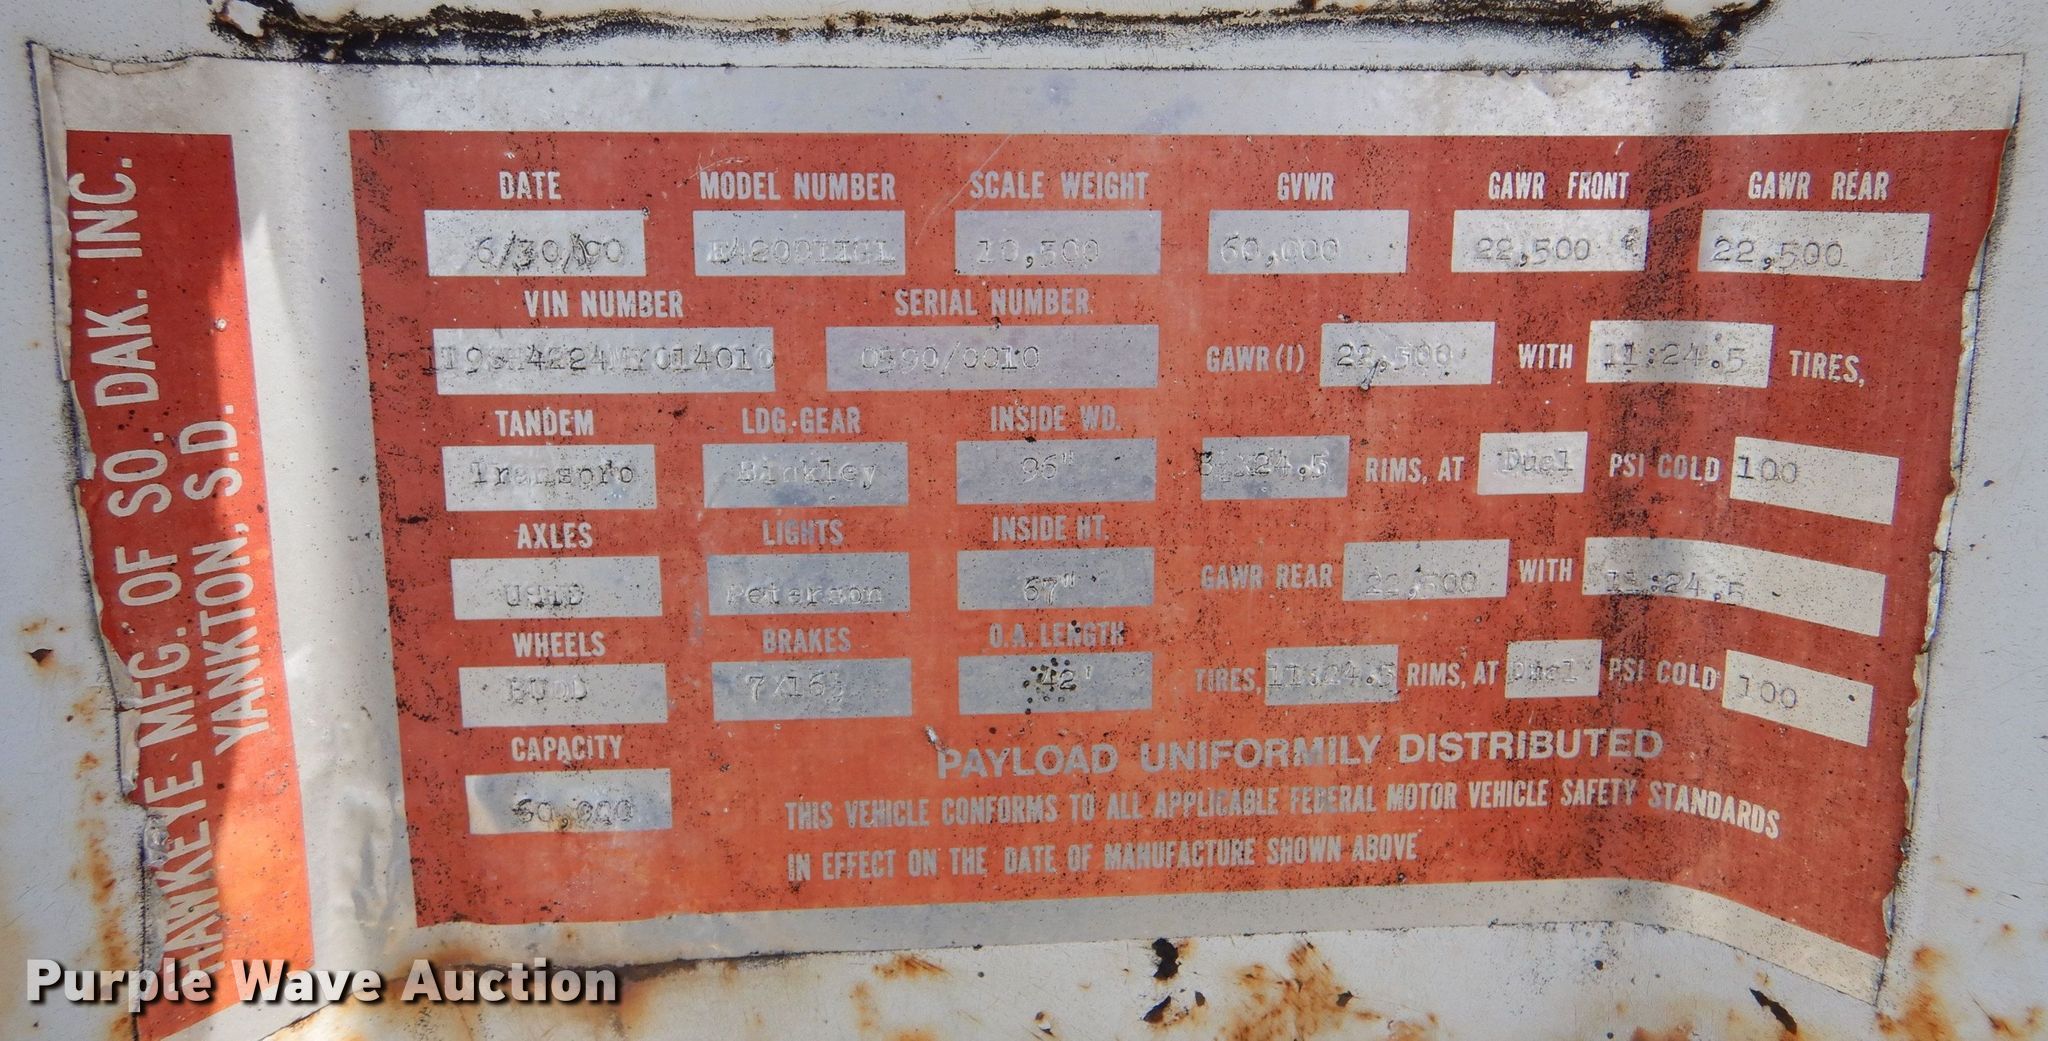 HAWKEYE MFG. OF SO. DAK. INC.
YANKTON, S.D.
DATE MODEL NUMBER SCALE WEIGHT GVWR GAWR FRONT GAWR REAR
6/30/90 10,500 60,000 22,500 22,500
VIN NUMBER SERIAL NUMBER.
0590/0010 GAWR(I) 22,500 WITH 11:24.5 TIRES,
TANDEM LDG. GEAR INSIDE WD.
Transpro Binkley 96" RIMS, AT Dual PSI COLD 100
AXLES LIGHTS INSIDE HT.
Peterson 67" GAWR REAR 22,500 WITH 11:24.5
WHEELS BRAKES O.A. LENGTH
BUDD 7X16½ 42' TIRES, 11:24.5 RIMS, AT Dual PSI COLD 100
CAPACITY
60,000
PAYLOAD UNIFORMILY DISTRIBUTED
THIS VEHICLE CONFORMS TO ALL APPLICABLE FEDERAL MOTOR VEHICLE SAFETY STANDARDS
IN EFFECT ON THE DATE OF MANUFACTURE SHOWN ABOVE
Purple Wave Auction